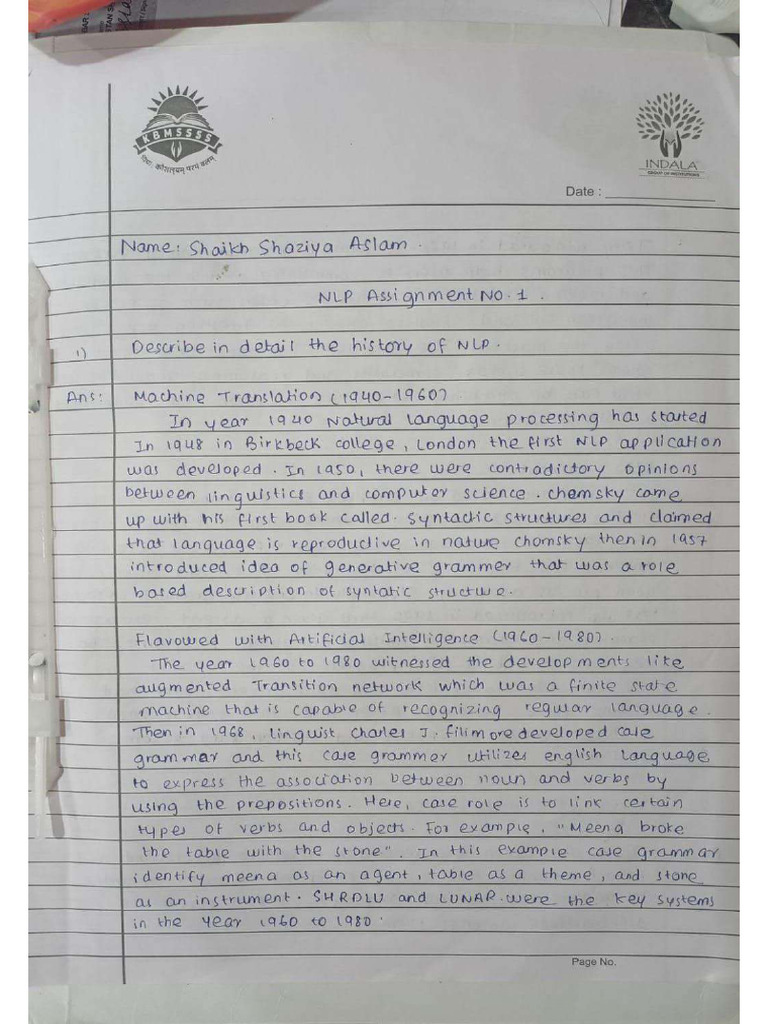 KBMSSSS
INDALA
GROUP OF INSTITUTIONS
Date :
Name: Shaikh Shaziya Aslam.
NLP Assignment No. 1.
1) Describe in detail the history of NLP.
Ans: Machine Translation (1940-1960)
In year 1940 Natural language processing has started
In 1948 in Birkbeck college, London the first NLP application
was developed. In 1950, there were contradictory opinions
between linguistics and computer science. chomsky came
up with his first book called. Syntactic structures and claimed
that language is reproductive in nature chomsky then in 1957
introduced idea of generative grammer that was a role
based description of syntatic structure.
Flavowed with Artificial Intelligence (1960-1980).
The year 1960 to 1980 witnessed the developments like
augmented Transition network which was a finite state
machine that is capable of recognizing regular language.
Then in 1968, linguist Charles J. fillmore developed case
grammar and this case grammer utilizes english language
to express the association between noun and verbs by
using the prepositions. Here, case role is to link certain
types of verbs and objects. For example, "Meena broke
the table with the stone". In this example case grammar
identify meena as an agent, table as a theme, and stone
as an instrument. SHRDLU and LUNAR were the key systems
in the year 1960 to 1980.
Page No.